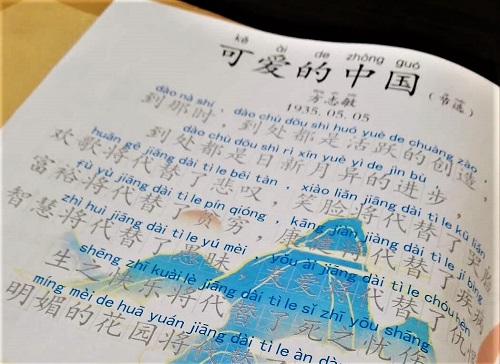 kě ài de zhōng guó
可爱的中国（节选）
方志敏
1935.05.05
dào nà shí , dào chù dōu shì huó yuè de chuàng zào ,
到那时，到处都是活跃的创造，
dào chù dōu shì rì xīn yuè yì de jìn bù
到处都是日新月异的进步，
huān gē jiāng dài tì le bēi tàn , xiào liǎn jiāng dài tì le kū liǎn
欢歌将代替了悲叹，笑脸将代替了哭脸
fù yù jiāng dài tì le pín qióng , kāng jiàn jiāng dài tì le jí bìng
富裕将代替了贫穷，康健将代替了疾病
zhì huì jiāng dài tì le yú mèi , yǒu ài jiāng dài tì le chóu hèn
智慧将代替了愚昧，友爱将代替了仇恨
shēng zhī kuài lè jiāng dài tì le sǐ zhī yōu shāng
生之快乐将代替了死之忧伤
míng mèi de huā yuán jiāng dài tì le àn dà
明媚的花园将